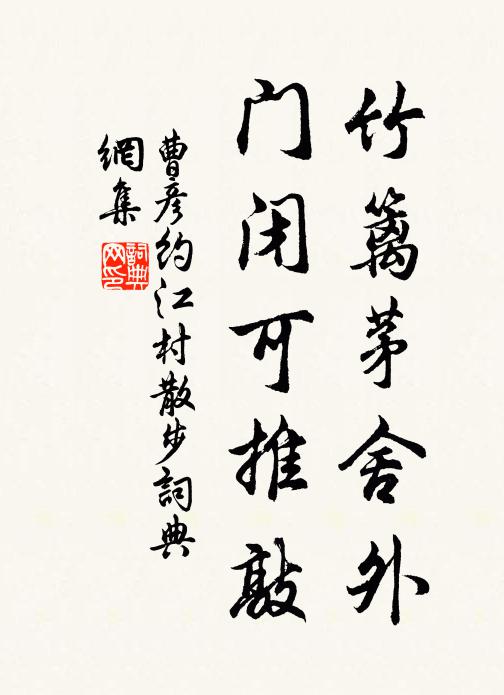 竹篱茅舍外
门闭可推敲
曹彦约江村散步詞典
網集
詞典网印